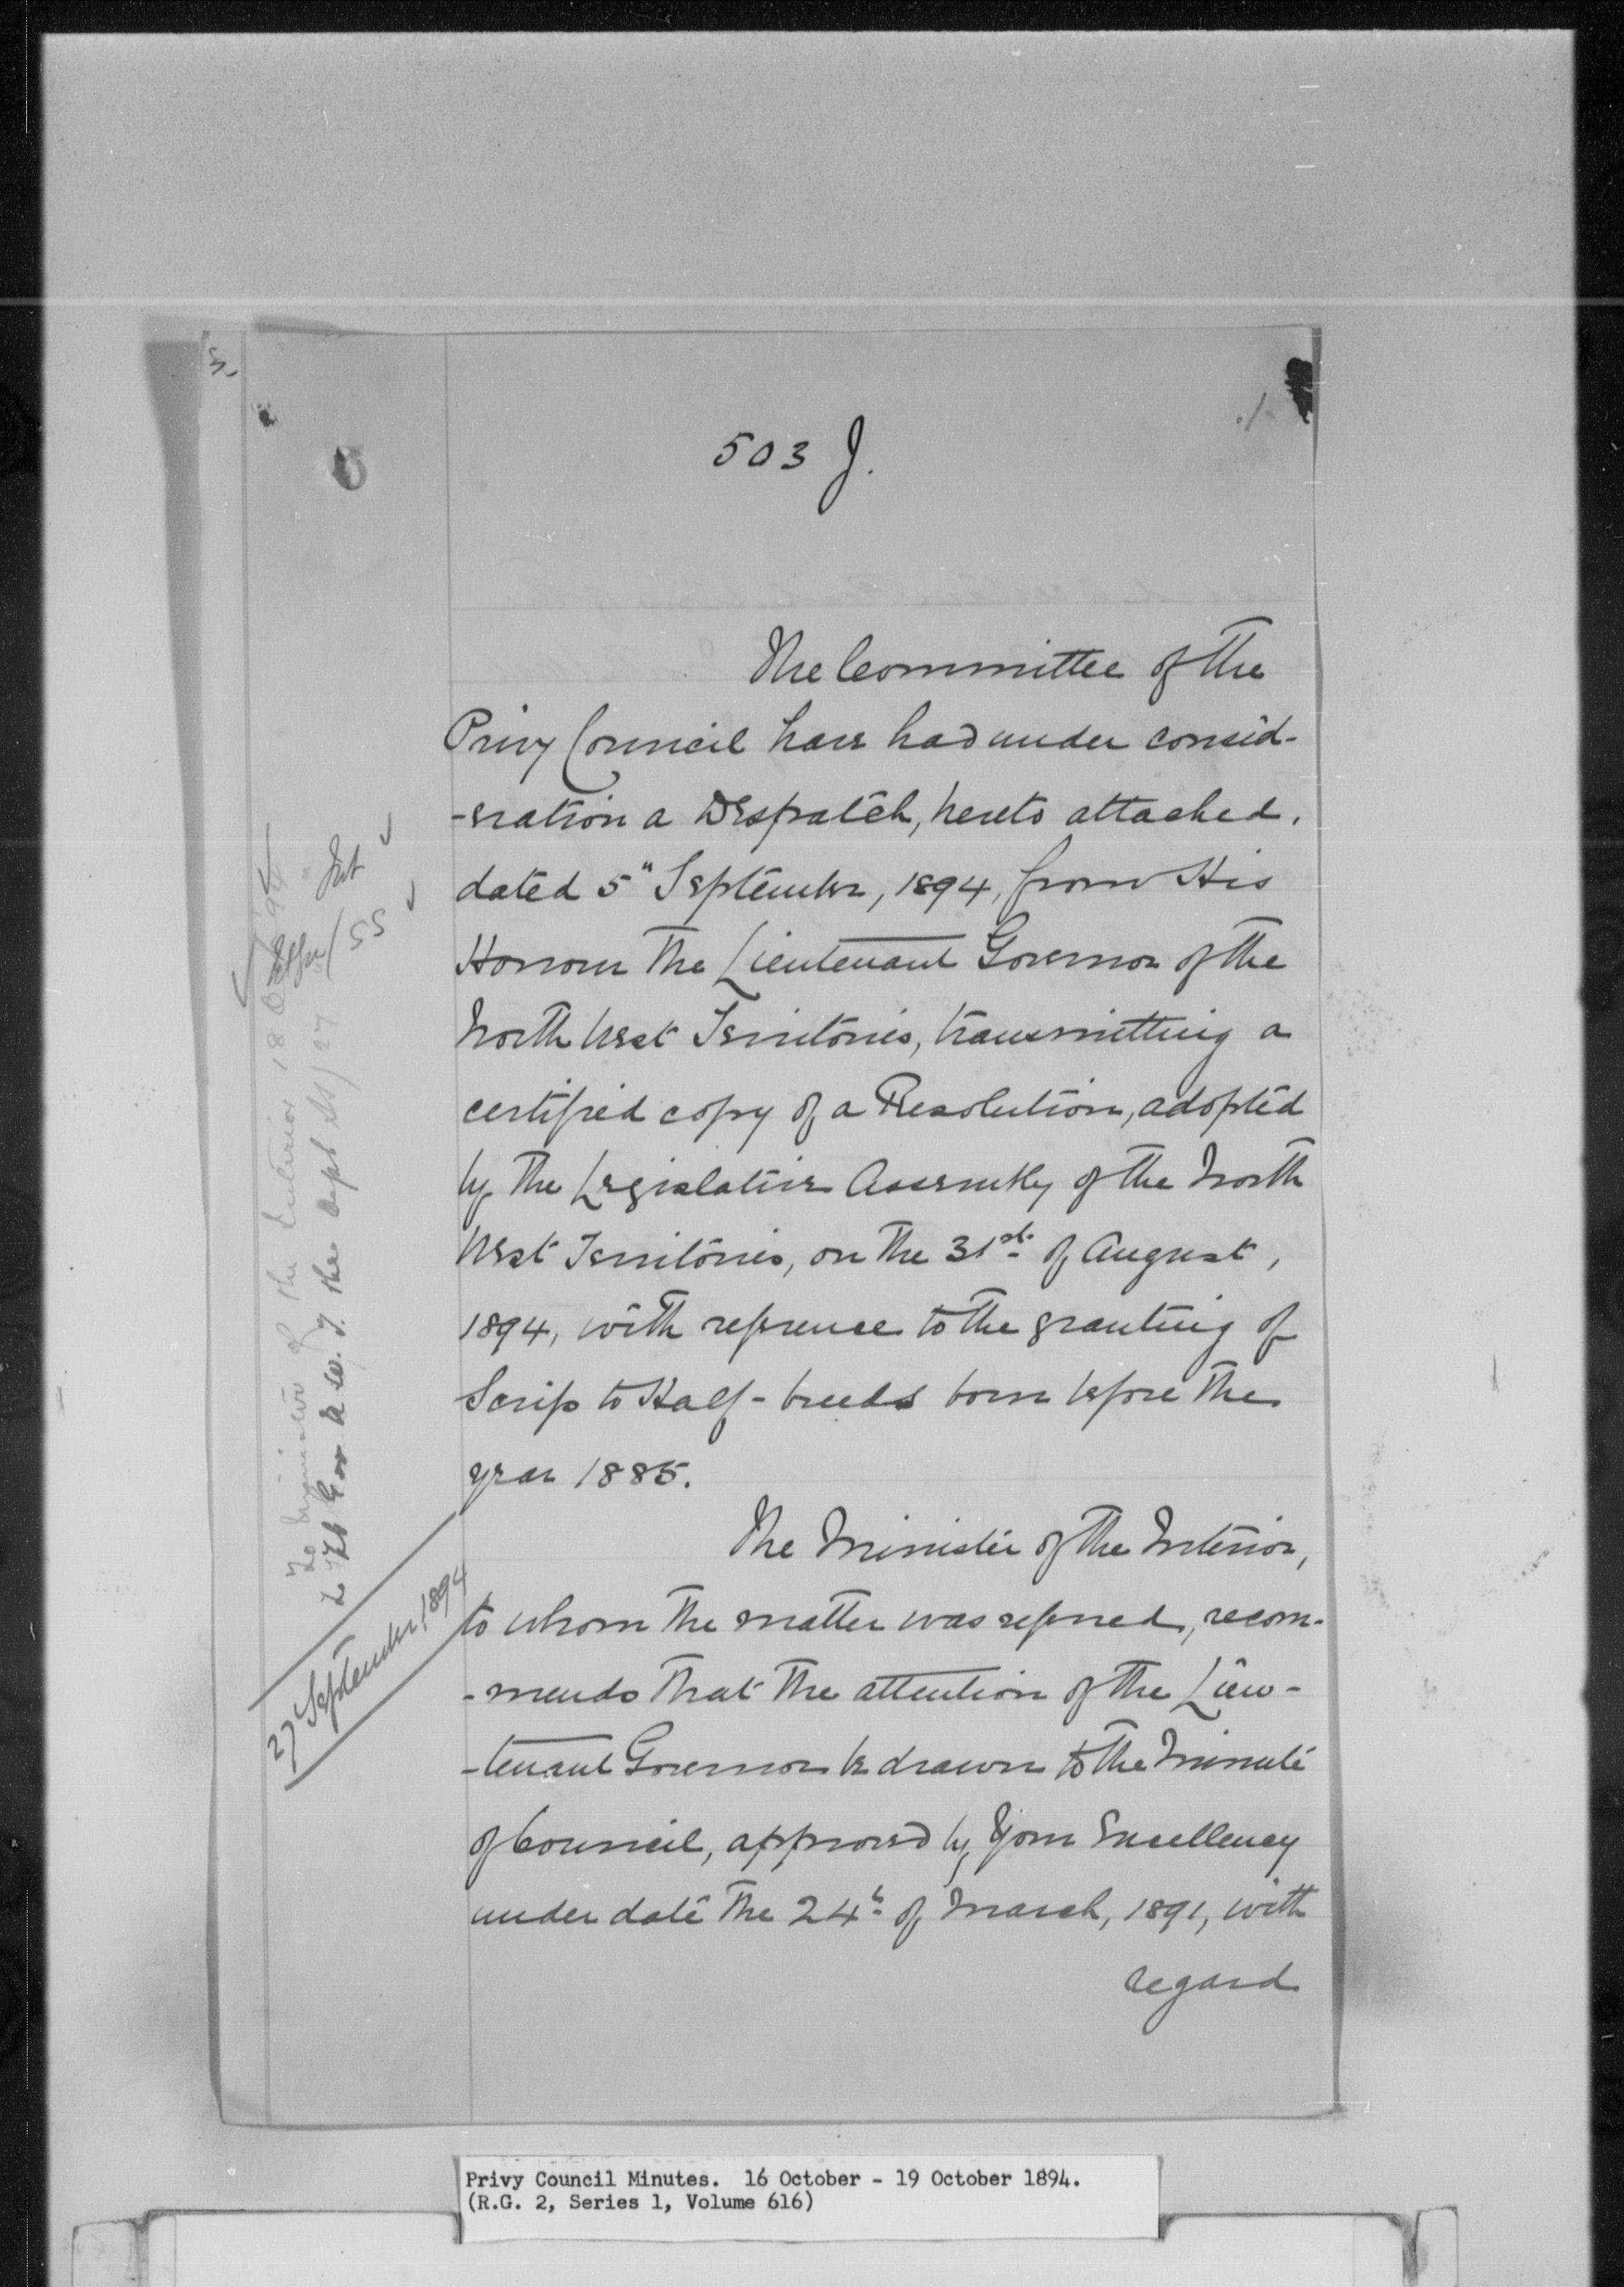 503 J.
The Committee of the
Privy Council have had under consid-
-eration a Despatch, hereto attached,
dated 5" September, 1894, from His
Honour the Lieutenant Governor of the
North West Territories, transmitting a
certified copy of a Resolution, adopted
by the Legislative Assembly of the North
West Territories, on the 31st of August,
1894, with reference to the granting of
Scrip to Half-breeds born before the
year 1885.
The Minister of the Interior,
to whom the matter was referred, recom-
-mends that the attention of the Lieu-
-tenant Governor be drawn to the Minute
of Council, approved by Your Excellency
under date the 24th of March, 1891, with
regard
27 September, 1894
To Minister of the Interior 18
Lt Gov N.W.T. the Dept 27
Int
SS
Privy Council Minutes. 16 October - 19 October 1894.
(R.G. 2, Series 1, Volume 616)